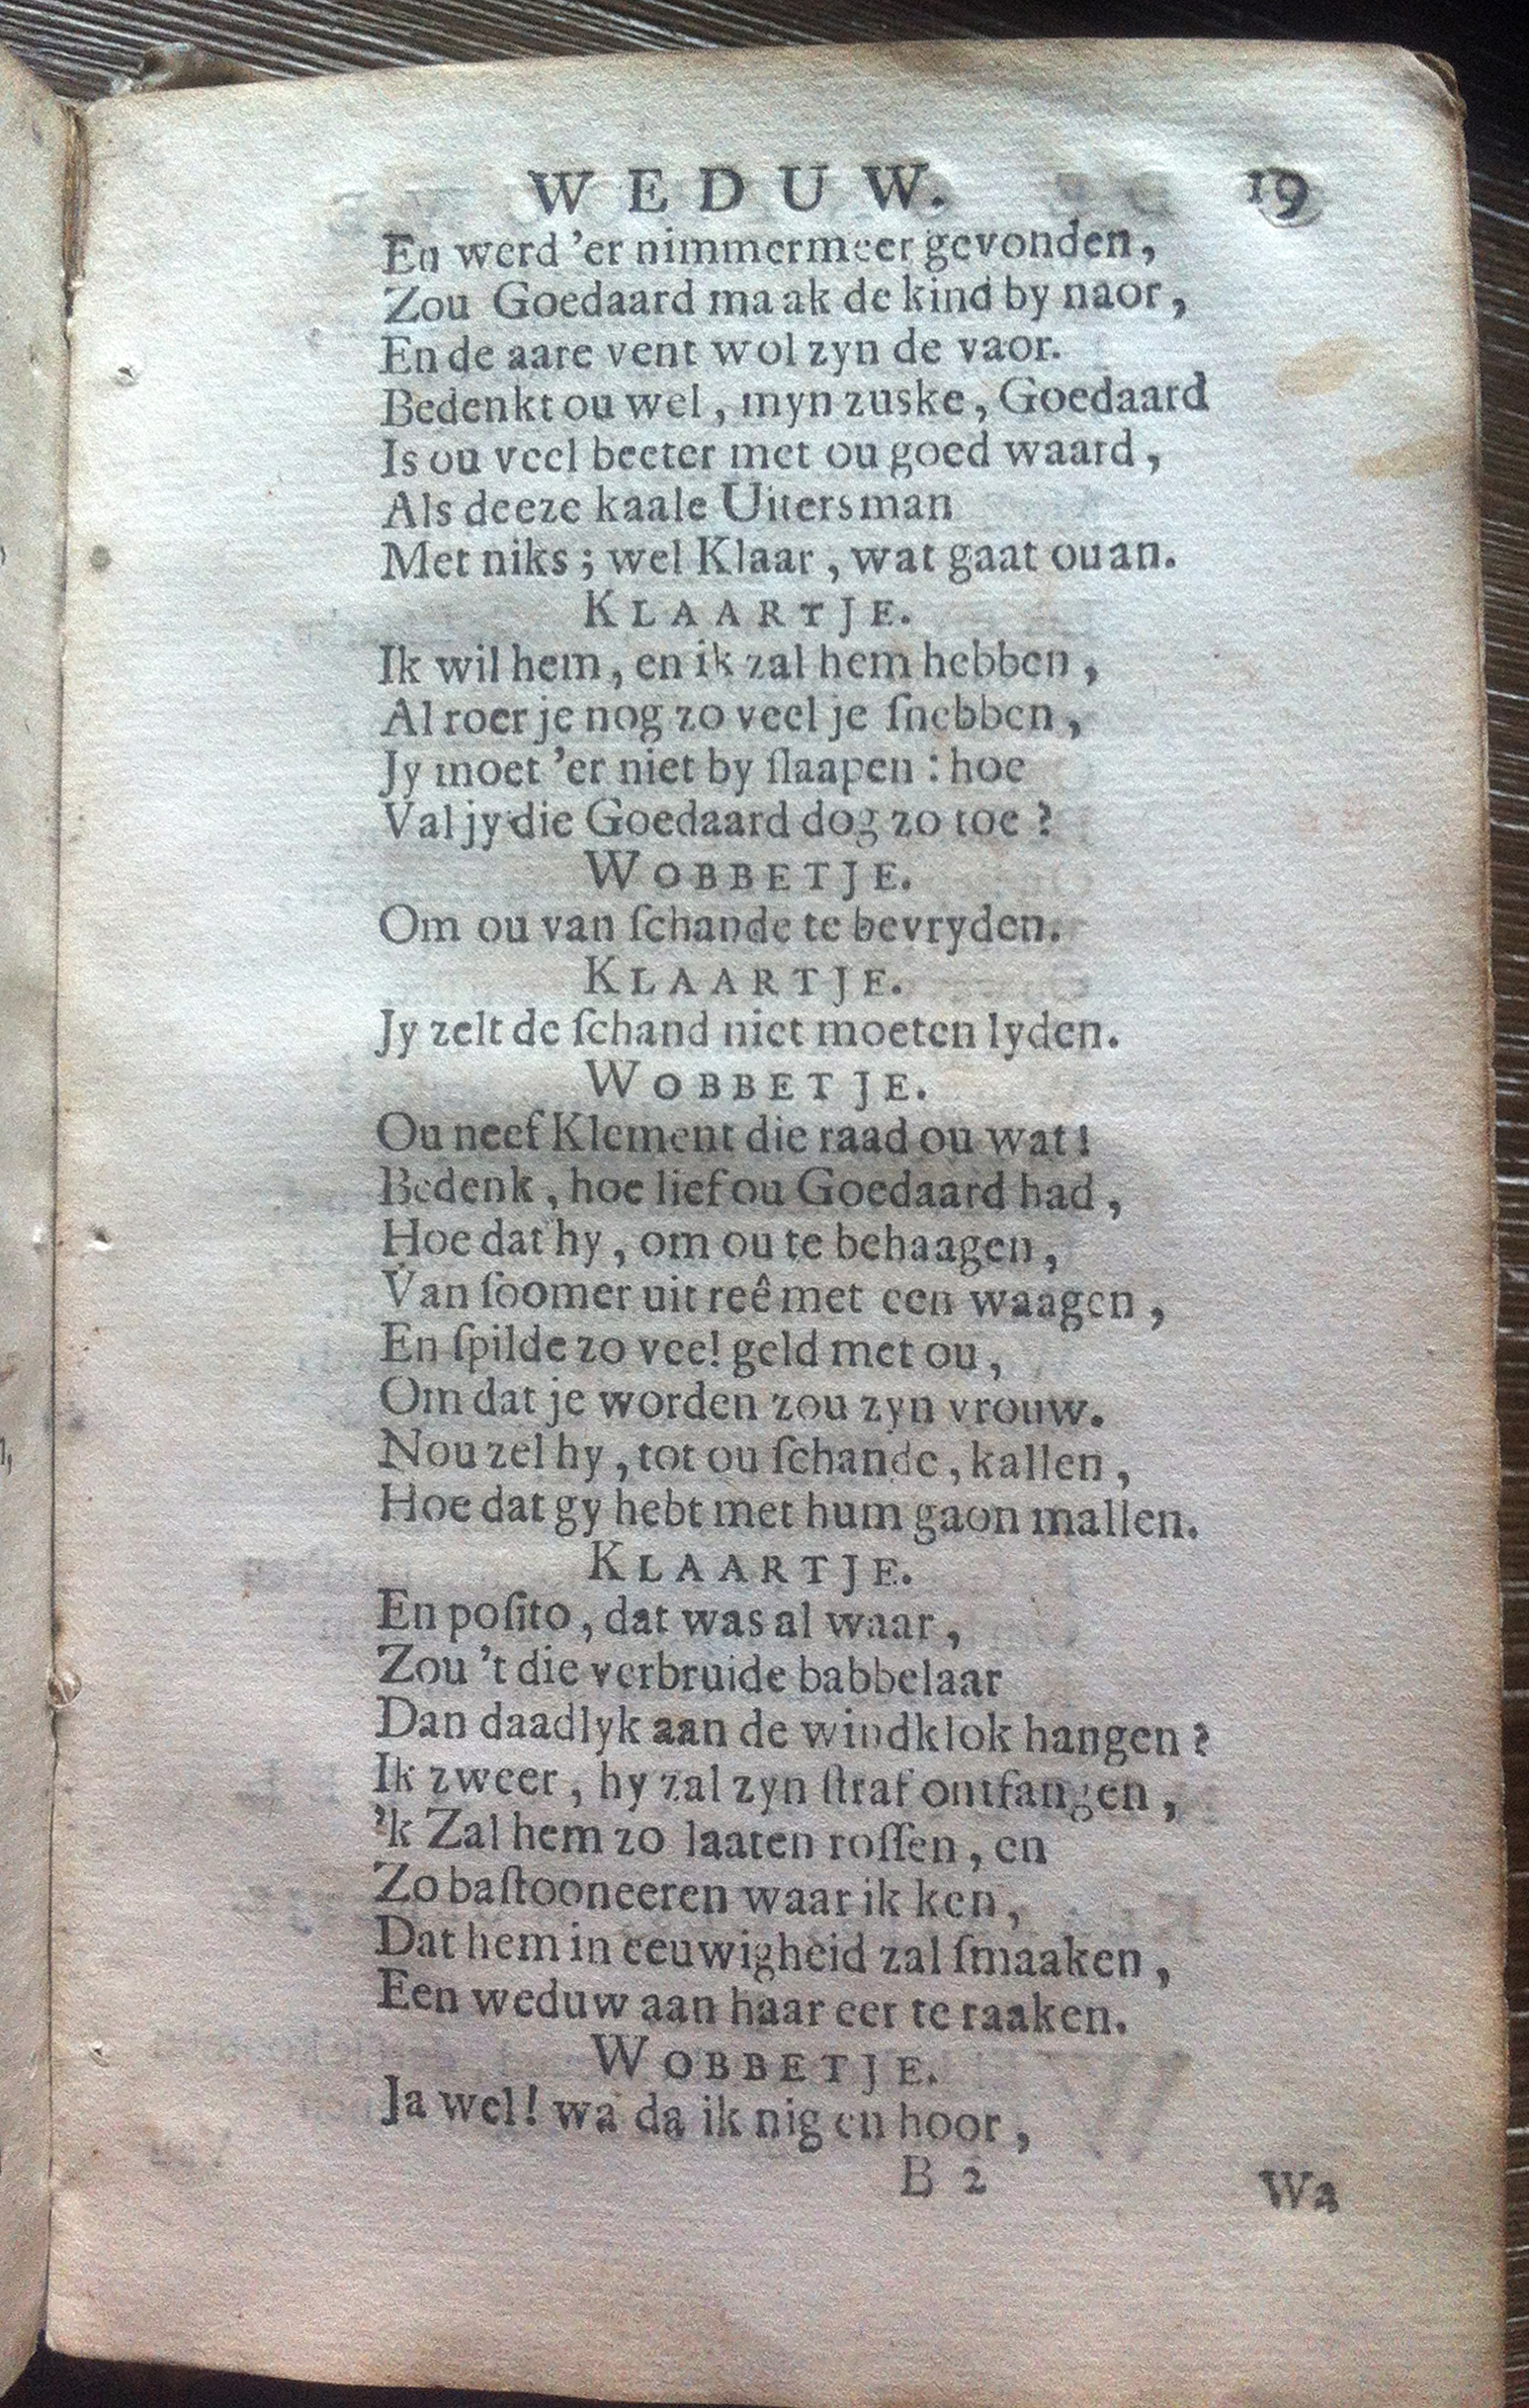 WEDUW. 19
En werd 'er nimmermeer gevonden,
Zou Goedaard maak de kind by naor,
En de aare vent wol zyn de vaor.
Bedenkt ou wel, myn zuske, Goedaard
Is ou veel beeter met ou goed waard,
Als deeze kaale Uitersman
Met niks; wel Klaar, wat gaat ou an.
KLAARTJE.
Ik wil hem, en ik zal hem hebben,
Al roer je nog zo veel je ſnebben,
Jy moet 'er niet by ſlaapen: hoe
Val jy die Goedaard dog zo toe?
WOBBETJE.
Om ou van ſchande te bevryden.
KLAARTJE.
Jy zelt de ſchand niet moeten lyden.
WOBBETJE.
Ou neef Klement die raad ou wat!
Bedenk, hoe lief ou Goedaard had,
Hoe dat hy, om ou te behaagen,
Van ſoomer uit reê met een waagen,
En ſpilde zo veel geld met ou,
Om dat je worden zou zyn vrouw.
Nou zel hy, tot ou ſchande, kallen,
Hoe dat gy hebt met hum gaon mallen.
KLAARTJE.
En poſito, dat was al waar,
Zou 't die verbruide babbelaar
Dan daadlyk aan de windklok hangen?
Ik zweer, hy zal zyn ſtraf ontfangen,
'k Zal hem zo laaten roſſen, en
Zo baſtooneeren waar ik ken,
Dat hem in eeuwigheid zal ſmaaken,
Een weduw aan haar eer te raaken.
WOBBETJE.
Ja wel! wa da ik nig en hoor,
B 2 Wa